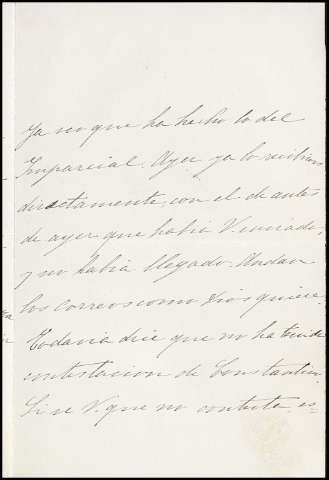 Ya veo que ha hecho lo del
Imparcial. Ayer ya lo recibimos
directamente, con el de antes
de ayer que habia V. enviado,
y no habia llegado. Andan
los correos como Dios quiere.
Todavia dice que no ha tenido
contestacion de Constantin.
Si ve V. que no contesta, es-